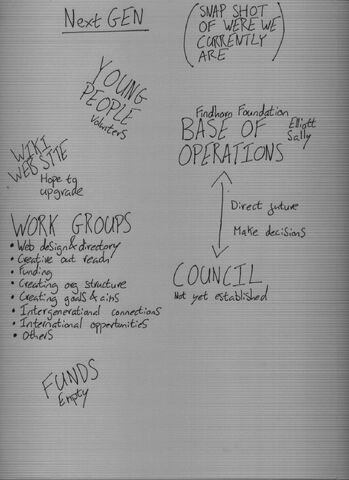 Next GEN
(SNAP SHOT
OF WERE WE
CURRENTLY
ARE)
YOUNG
PEOPLE
Volunters
Findhorn Foundation
BASE OF
OPERATIONS
Elliott
Sally
WIKI
WEB SITE
Hope to
upgrade
Direct future
Make decisions
WORK GROUPS
• Web design & directory
• Creative out reach
• Funding
• Creating org structure
• Creating goals & aims
• Intergenerational connections
• International oppertunities
• Others
COUNCIL
Not yet established
FUNDS
Empty